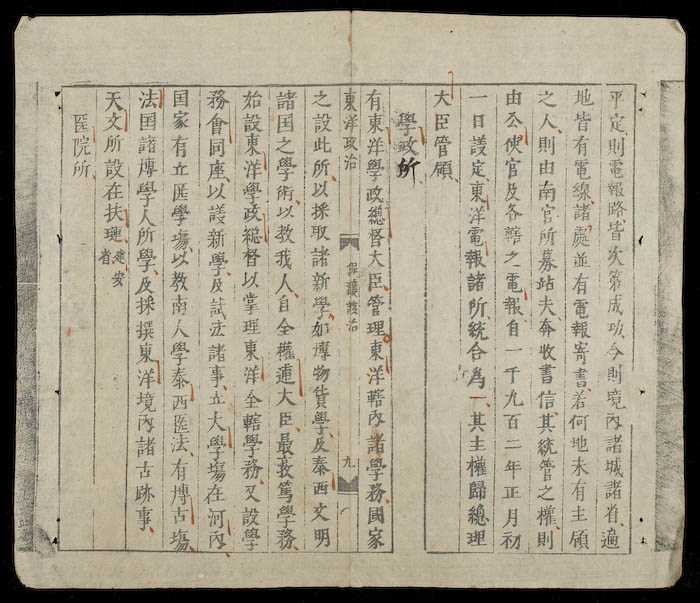 平定則電報路皆次第成功今則境內諸城諸省遍
地皆有電線諸處並有電報寄書若何地未有主領
之人則由南官所募站夫奔收書信其統管之權則
由公使官及各轄之電報自一千九百二年正月初
一日議定東洋電報諸所統合爲一其主權歸總理
大臣管領
學政所
有東洋學政總督大臣管理東洋轄內諸學務國家
東洋政治 保護政治 九
之設此所以採取諸新學如博物貨學及泰西文明
諸国之學術以教我人自全權逋大臣最妥篤學務
始設東洋學政總督以掌理東洋全轄學務又設學
務會同座以議新學及試法諸事立大學場在河內
国家有立医學場以教南人學泰西医法有博古場
法国諸博學人所學及採撰東洋境內諸古跡事
天文所設在扶璉建安省
医院所